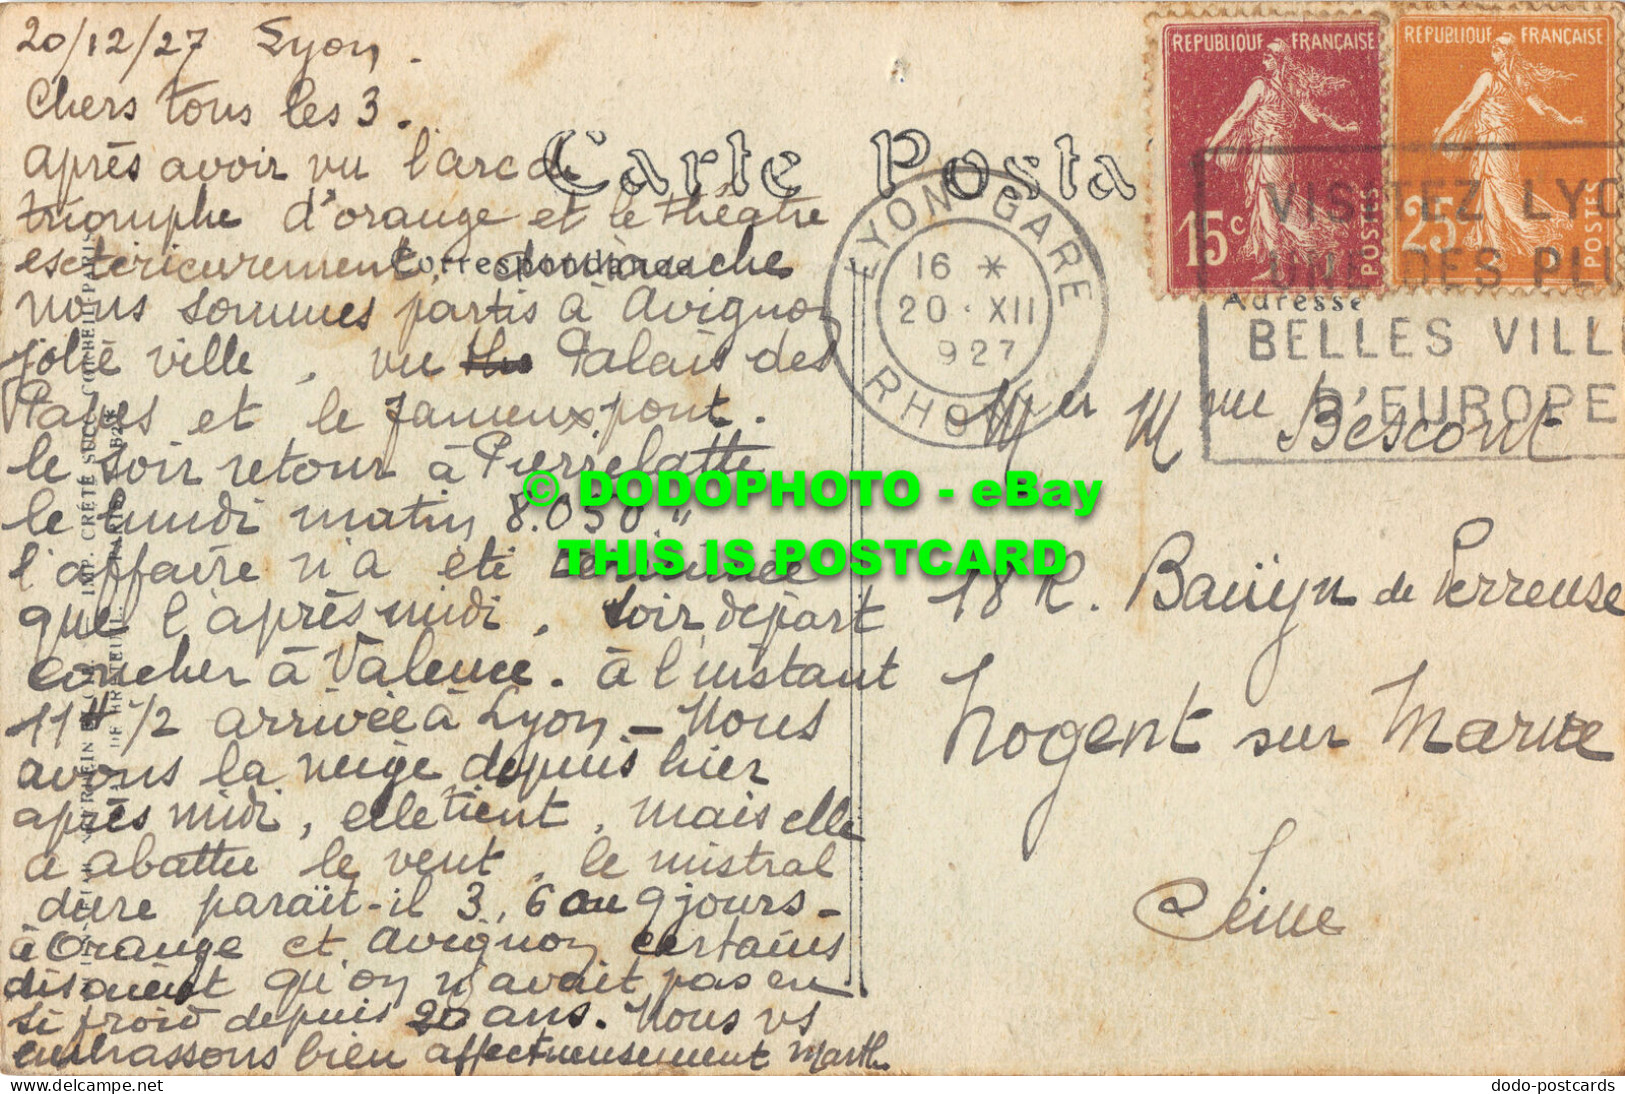 20/12/27 Lyon.
Chers tous les 3.
après avoir vu l'arc de
triomphe d'orange et le théatre
exterieurement, dimanche
nous sommes partis à Avignon
jolie ville, vu Palais des
Papes et le fameux pont.
le soir retour à Pierrelatte
le lundi matin 8.050"
l'affaire n'a été terminée
que l'après midi. Soir, depart
coucher à Valence. à l'instant
11H 1/2 arrivée à Lyon - Nous
avons la neige depuis hier
après midi, elle tient, mais elle
a abattu le vent. le mistral
dure parait-il 3, 6 ou 9 jours -
à Orange et Avignon certains
disaient qu'on n'avait pas eu
si froid depuis 20 ans. Nous vs
embrassons bien affectueusement Marth
Carte Posta
Correspondance
Adresse
REPUBLIQUE FRANÇAISE
15c
POSTES
REPUBLIQUE FRANÇAISE
25c
POSTES
LYON GARE
16 *
20 · XII
927
RHONE
VISITEZ LYO
UNE DES PLU
BELLES VILL
D'EUROPE
Mr et Mme Bescont
18 R. Bauÿn de Perreuse
Nogent sur Marne
Seine
IMP. CRÉTÉ SUCC. CORBEIL-PARIS
© DODOPHOTO - eBay
THIS IS POSTCARD
www.delcampe.net
dodo-postcards